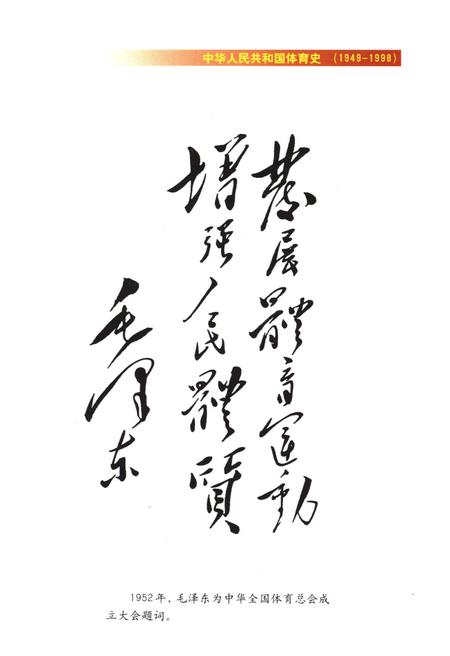 中华人民共和国体育史 (1949-1998)
發展體育運動
增强人民體質
毛泽东
1952年、毛泽东为中华全国体育总会成
立大会题词。